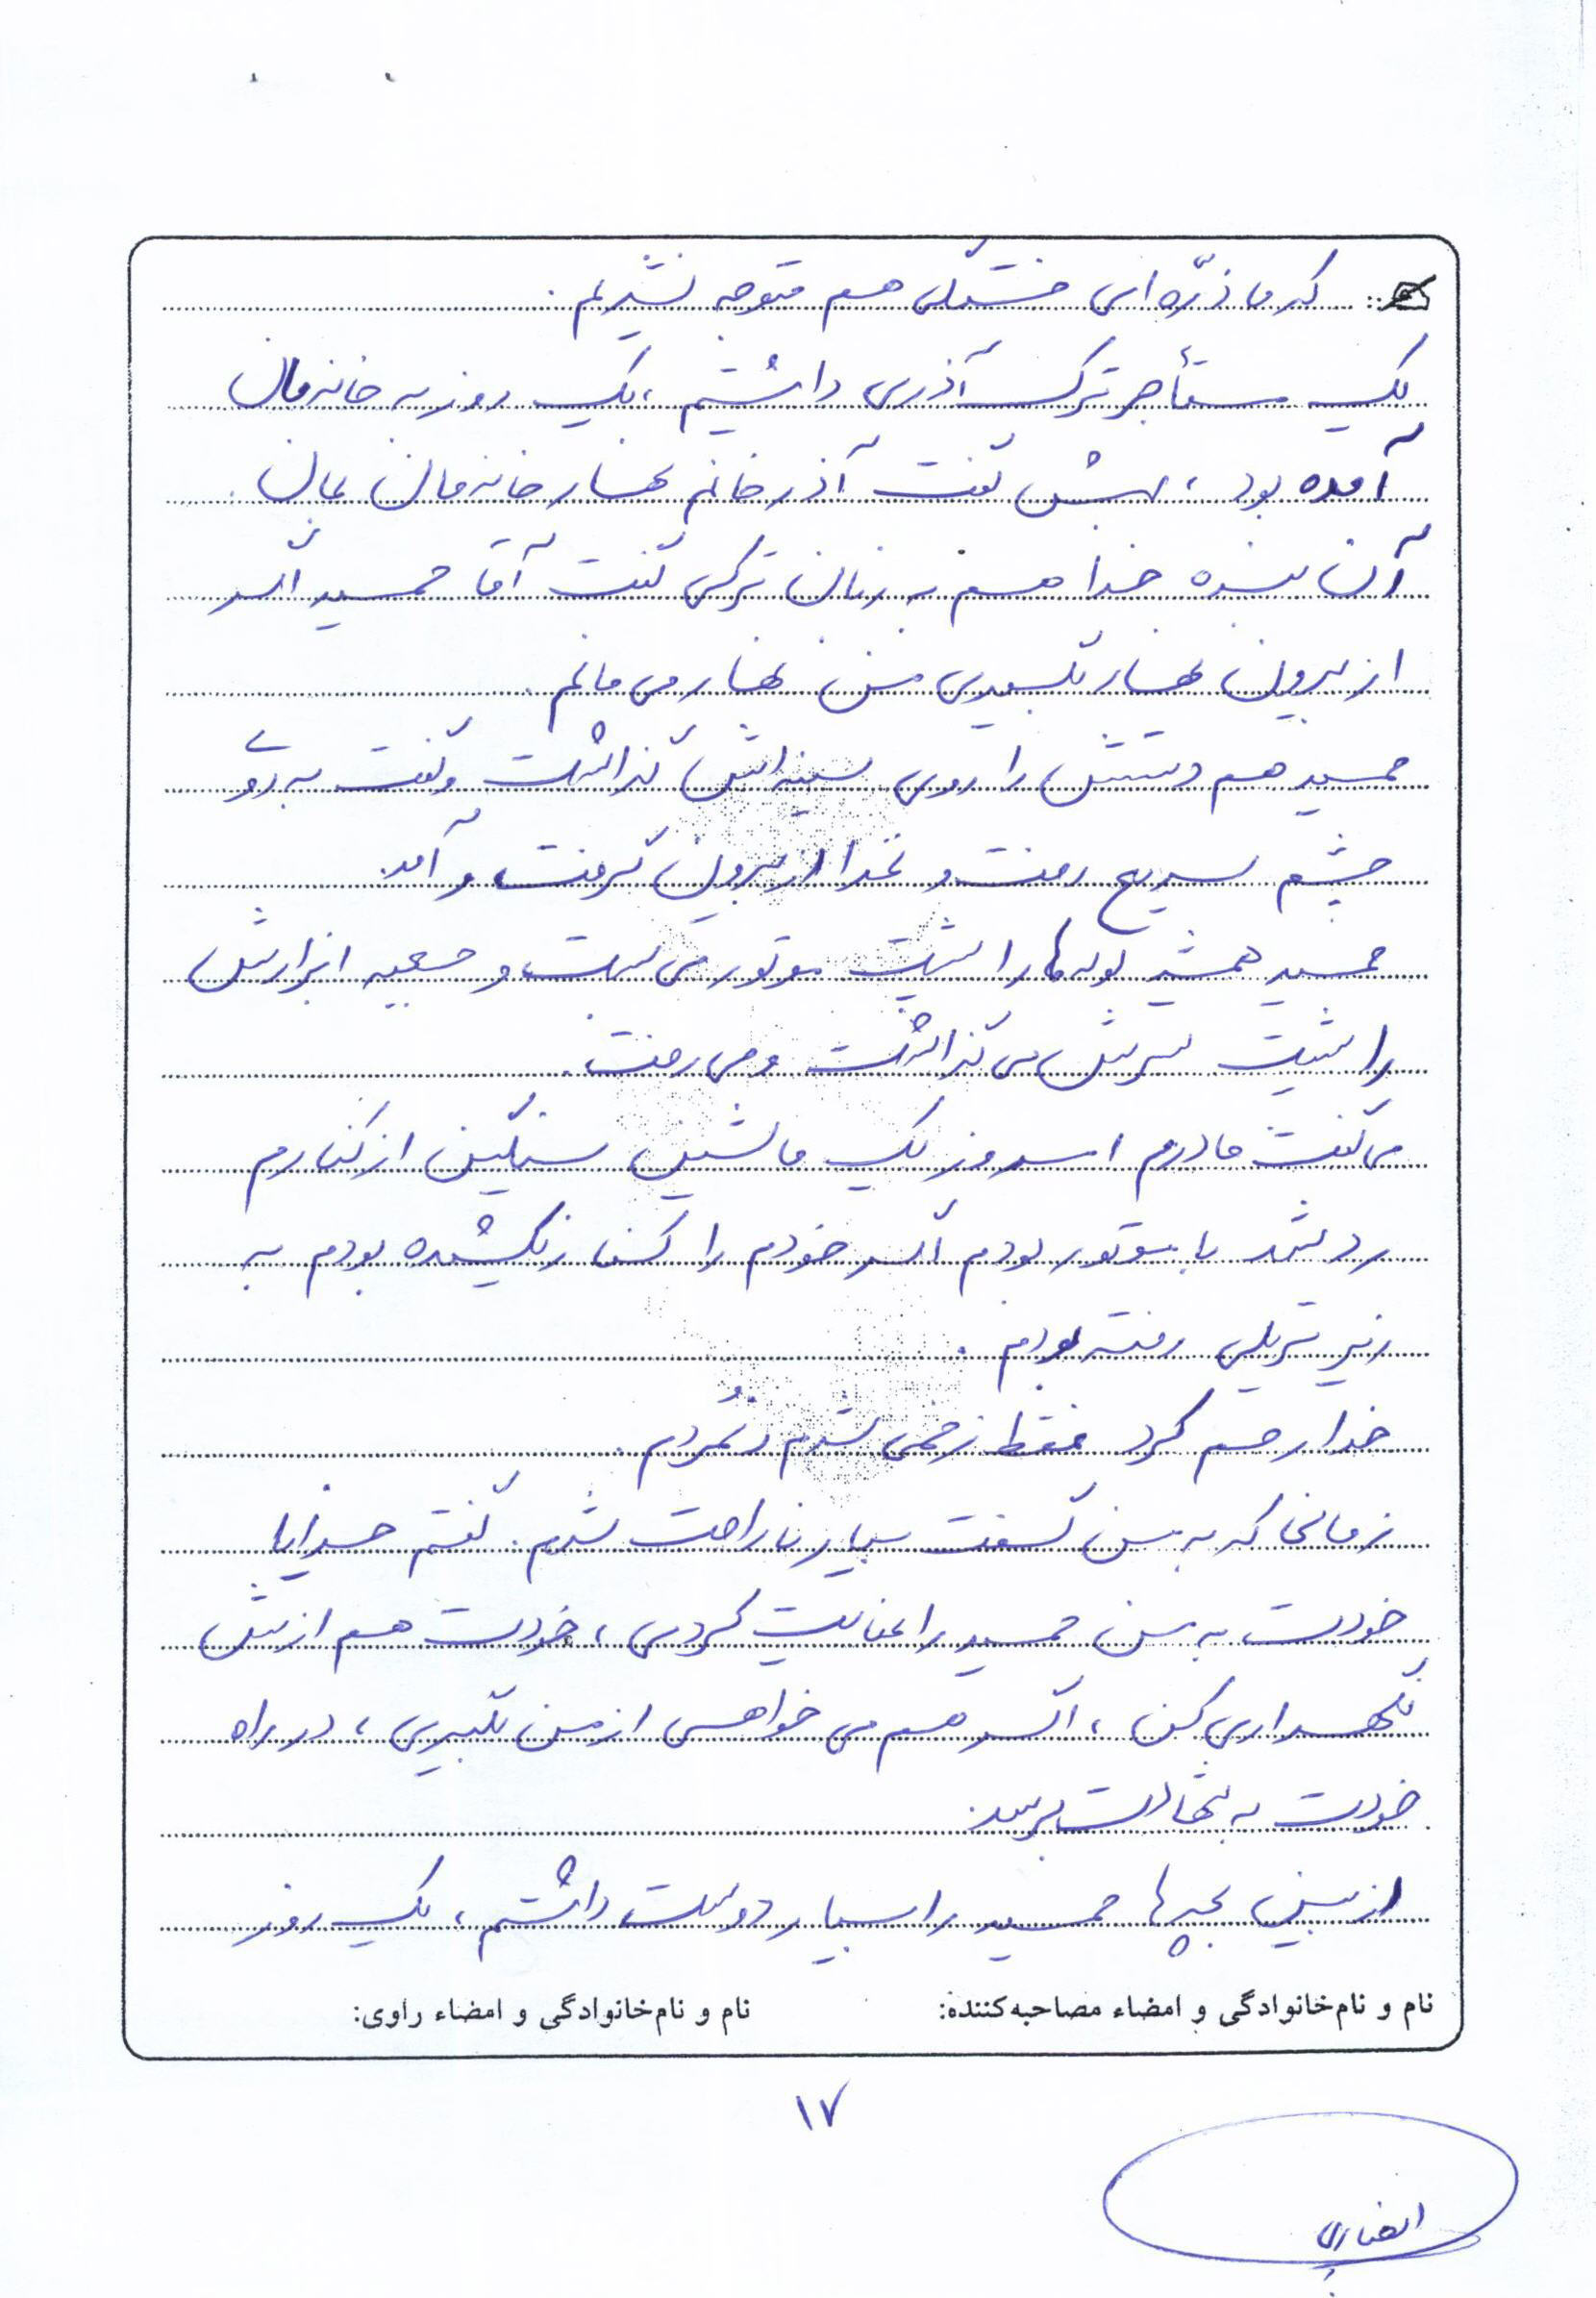 که ما ذرّه ای خشکی هم متوجه نشدیم.
یک مستأجر ترک آذری داشتیم، یک روز به خانه مان
آمده بود، بهش گفت آذر خانم نهار خانه مان بمان.
آن بنده خدا هم به زبان ترکی گفت آقا حمید اگر
از بیرون نهار بگیری من نهار می مانم.
حمید هم دستش را روی سینه اش گذاشت و گفت به روی
چشم سریع رفت و غذا از بیرون گرفت و آمد.
حمید همیشه لوله ها را پشت موتور می بست و جعبه ابزارش
را پشت سرش می گذاشت و می رفت.
می گفت مادرم امروز یک ماشین سنگین از کنارم
رد شد با موتور بودم اگر خودم را کنار نکشیده بودم به
زیر تریلی رفته بودم.
خدا رحم کرد فقط زخمی شدم و نمُردم.
زمانی که به من گفت بسیار ناراحت شدم. گفتم خدایا
خودت به من حمید را عنایت کردی، خودت هم ازش
نگهداری کن، اگر هم می خواهی از من بگیری، در راه
خودت به شهادت برسد.
از بین بچه ها حمید را بسیار دوست داشتم، یک روز
نام و نام خانوادگی و امضاء مصاحبه کننده:
نام و نام خانوادگی و امضاء راوی:
۱۷
انصاری